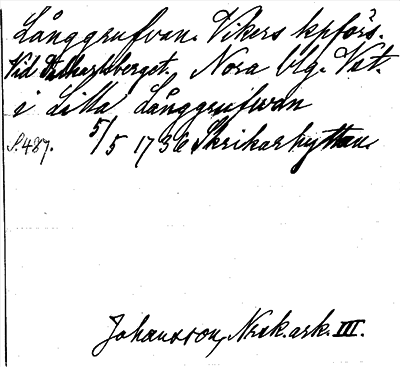 Långgrufvan. Vikers kpförs.
Vid Dalkarlsberget. Nora blg. Vst.
i Lilla Långgrufwan
S. 487. 5/5 1736 Skrikarhyttan
Johansson, Norask. ark. III.